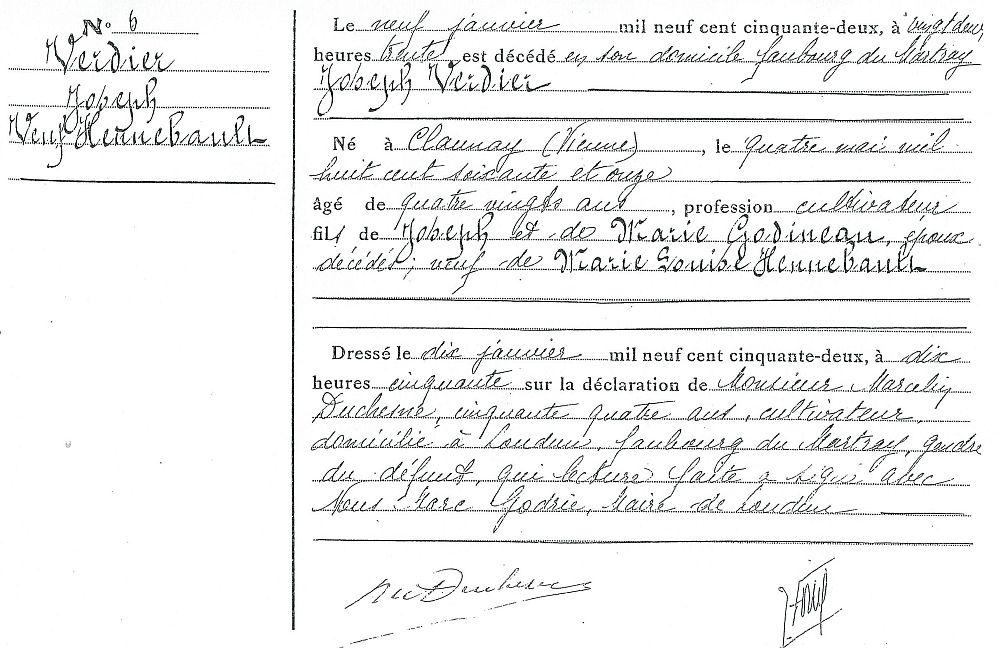 N° 6
Verdier
Joseph
Veuf Hennebault
Le neuf janvier mil neuf cent cinquante-deux, à vingt deux
heures trente est décédé en son domicile faubourg du Martray
Joseph Verdier
Né à Claunay (Vienne), le quatre mai mil
huit cent soixante et onze
âgé de quatre vingts ans, profession cultivateur
fils de Joseph et de Marie Godineau, époux
décédés; veuf de Marie Louise Hennebault
Dressé le dix janvier mil neuf cent cinquante-deux, à dix
heures cinquante sur la déclaration de Monsieur Marcelin
Duchesne, cinquante quatre ans, cultivateur,
domicilié à Loudun, faubourg du Martray, gendre
du défunt, qui lecture faite a signé avec
Nous Marc Godrie, Maire de Loudun